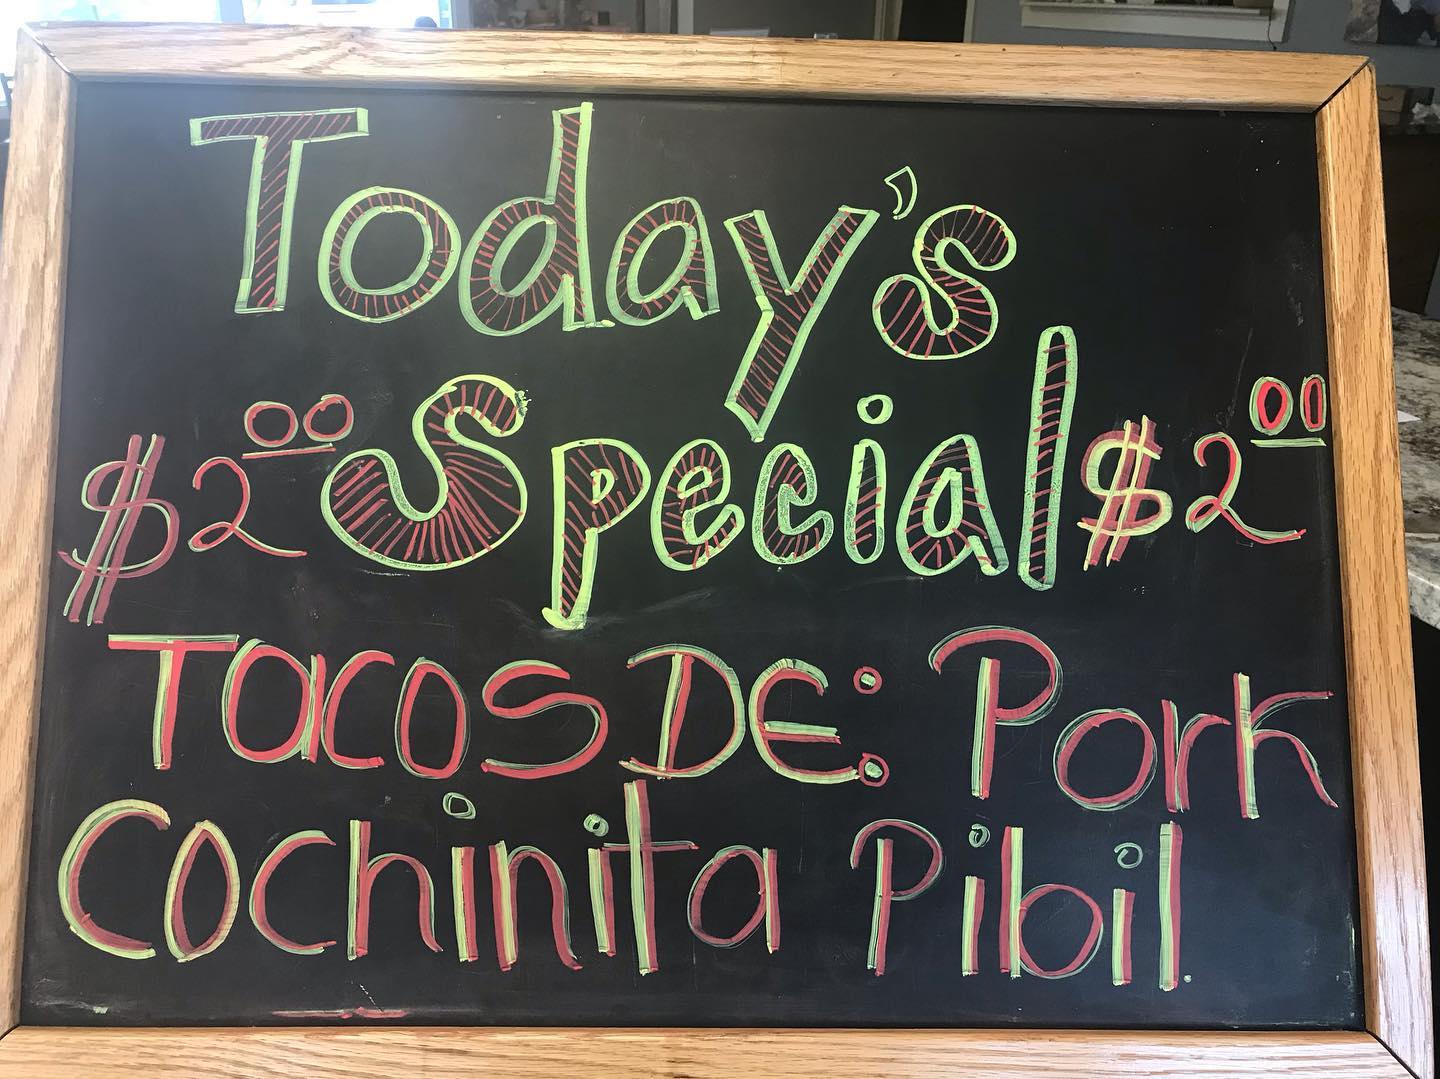 Today's
$2.00 Special $2.00
TACOS DE: Pork
Cochinita Pibil.